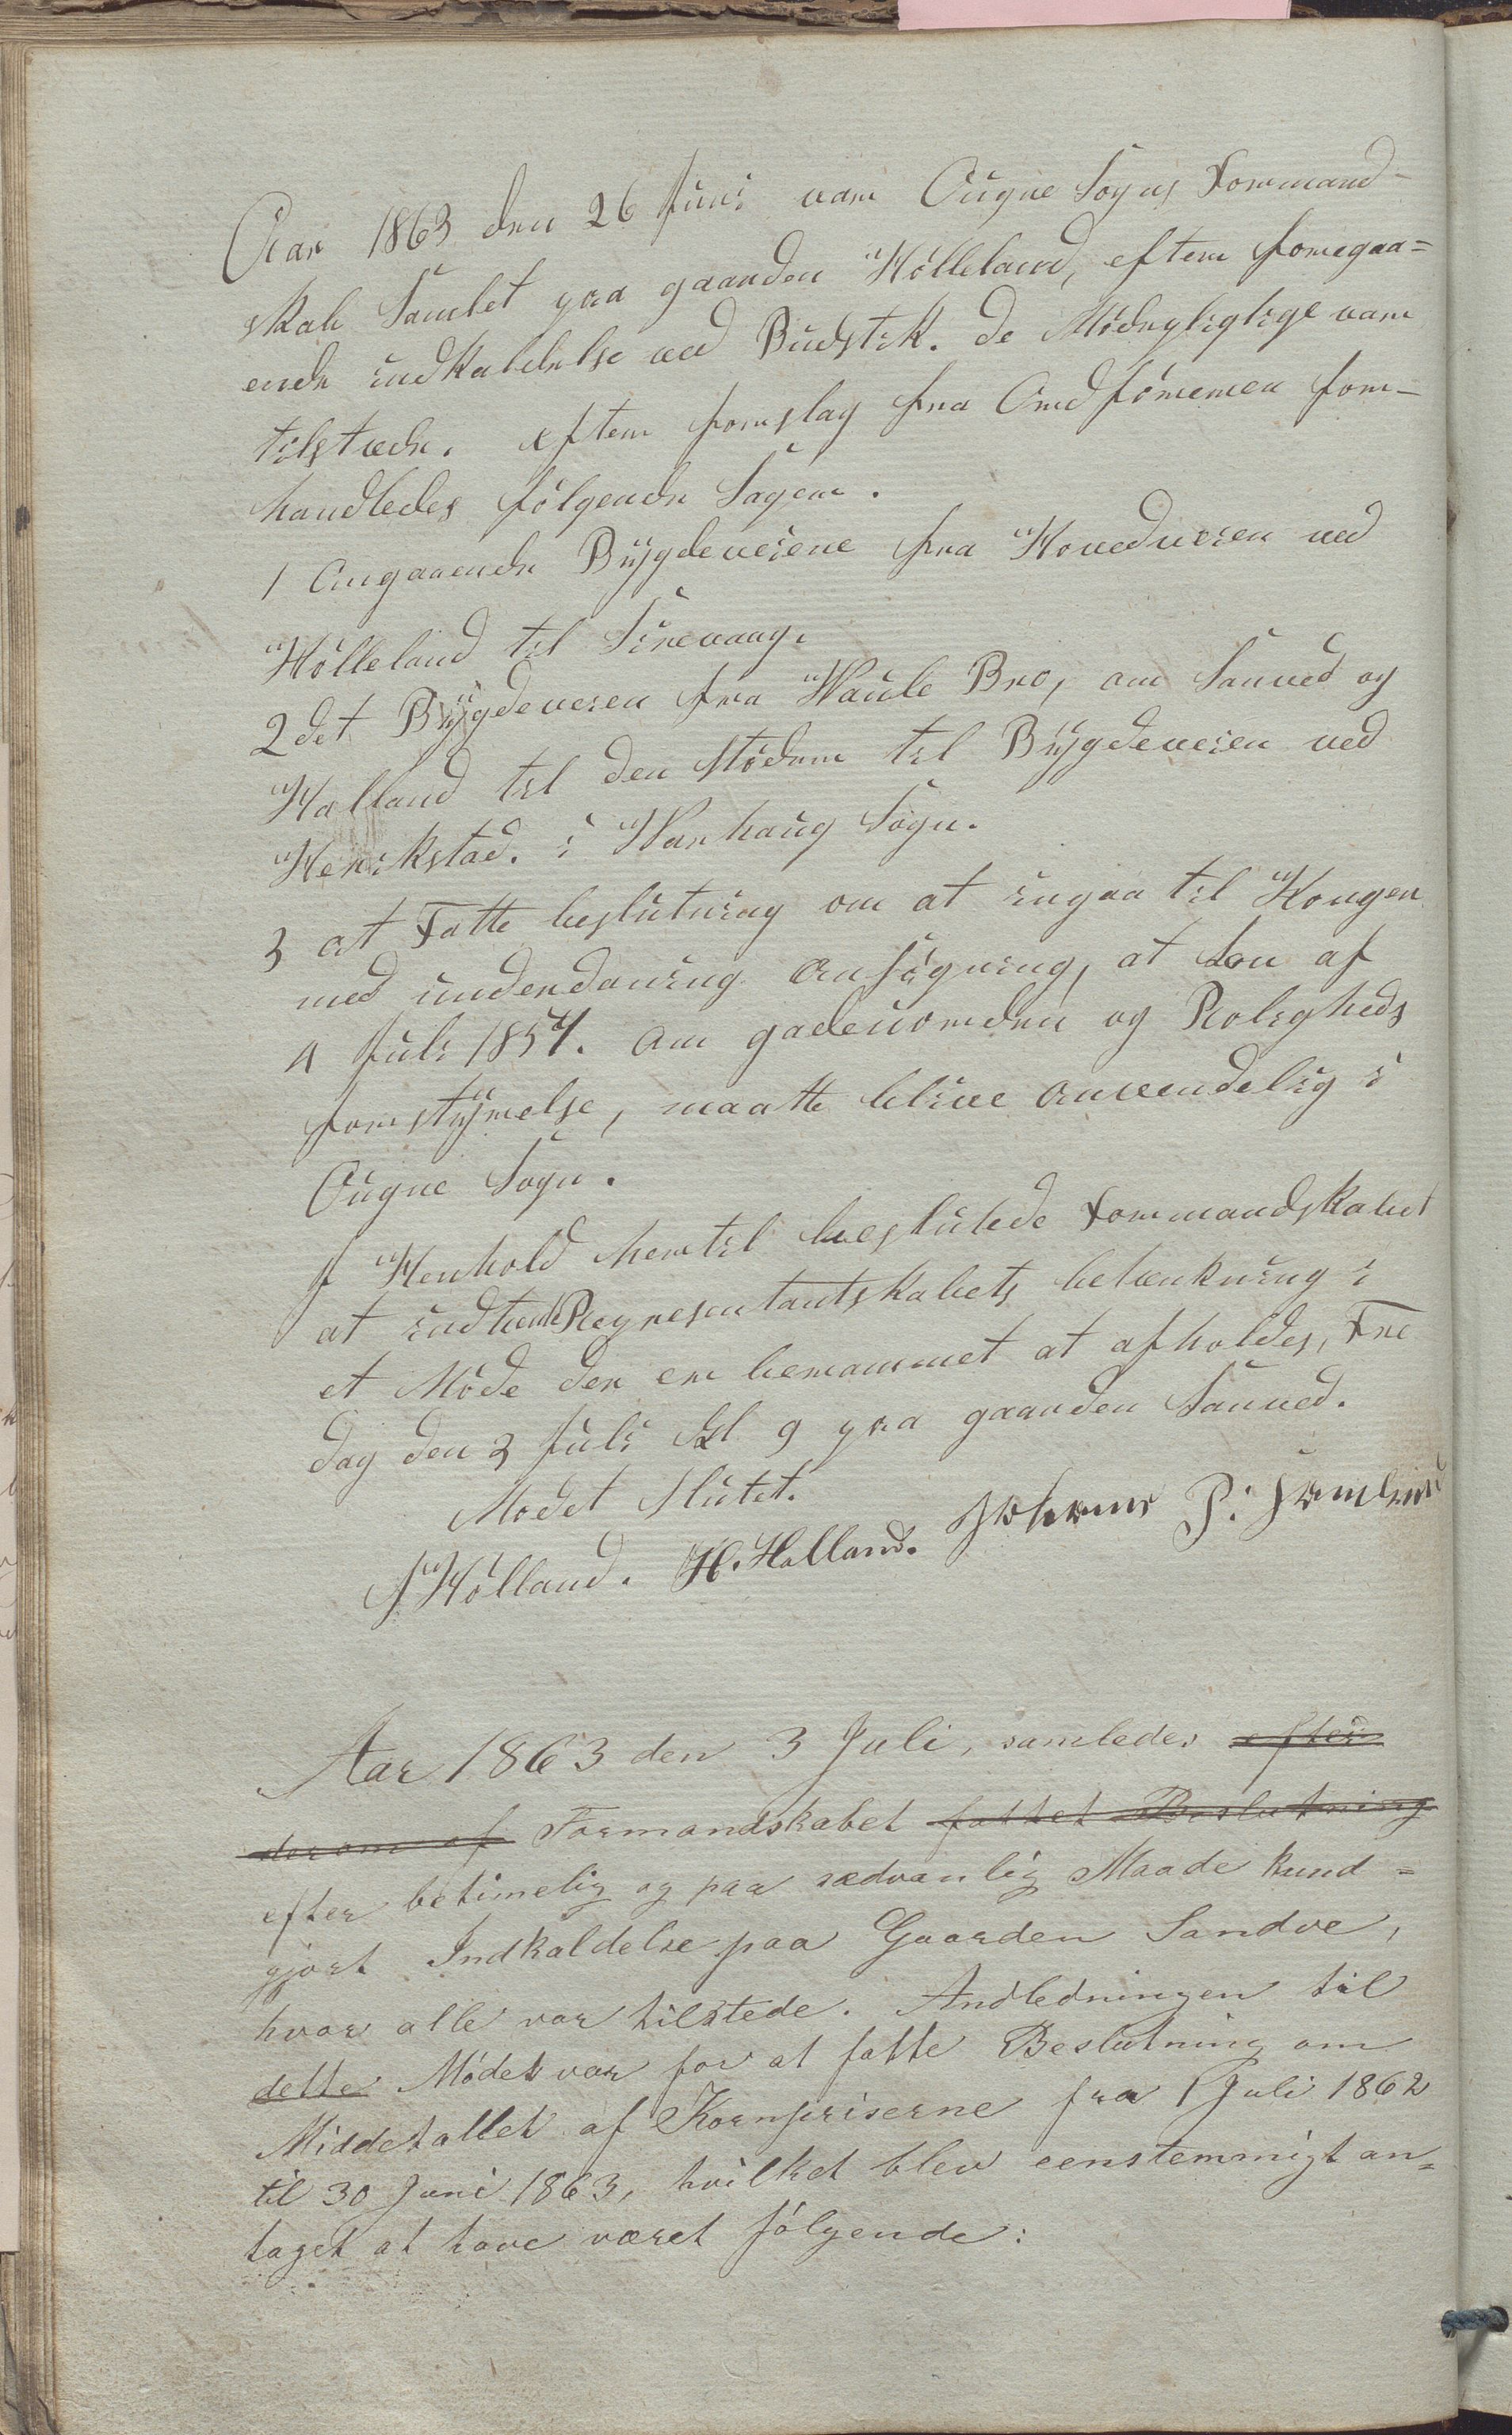 Aar 1863 den 26 Juni vam Ougne Sogns Formand-
skab Samlet paa gaarden Hölleland, eftem foregaa=
ende indkaldelse ved Budstik. de Mödepligtige vam
tilstæde. eftem forslag fra Ordföremen for-
handledes fölgende Sagem.
1 Angaaende Bÿgdeveiene fra Hovedveien ved
Hölleland til Sirevaag.
2det Bÿgdeveien fra Haule Bro, om Sanved og
Halland til den Stöder til Bÿgdeveien ved
Henrikstad. i Warhaug Sogn.
3 at Fatte beslutning om at ingaa til Kongen
med underdaning Ansögning, at Lov af
4 Juli 1857. Om gadeuorden og Roligheds
forstÿrrelse, maatte blive Anvendelig i
Ougne Sogn.
I Henhold hertil besluttede Formandskabet
at indhente Representantskabets betænkning i
et Möde der er berammet at afholdes, Fre
dag den 3 Juli Kl 9 paa gaarden Sanved.
Modet Slutet.
J Hölland. H. Halland. Johanes P:
Aar 1863 den 3 Juli, samledes efter
derom af Formandskabet fattet Beslutning
efter betimelig og paa sædvanlig Maade kund=
gjort Indkaldelse paa Gaarden Sandve,
hvor alle var tilstede. Andledningen til
dette Mödet var for at fatte Beslutning om
Middetallet af Kornpriserne fra 1 Juli 1862
til 30 Juni 1863, hvilket blev eenstemmigt an=
taget at have været fölgende: